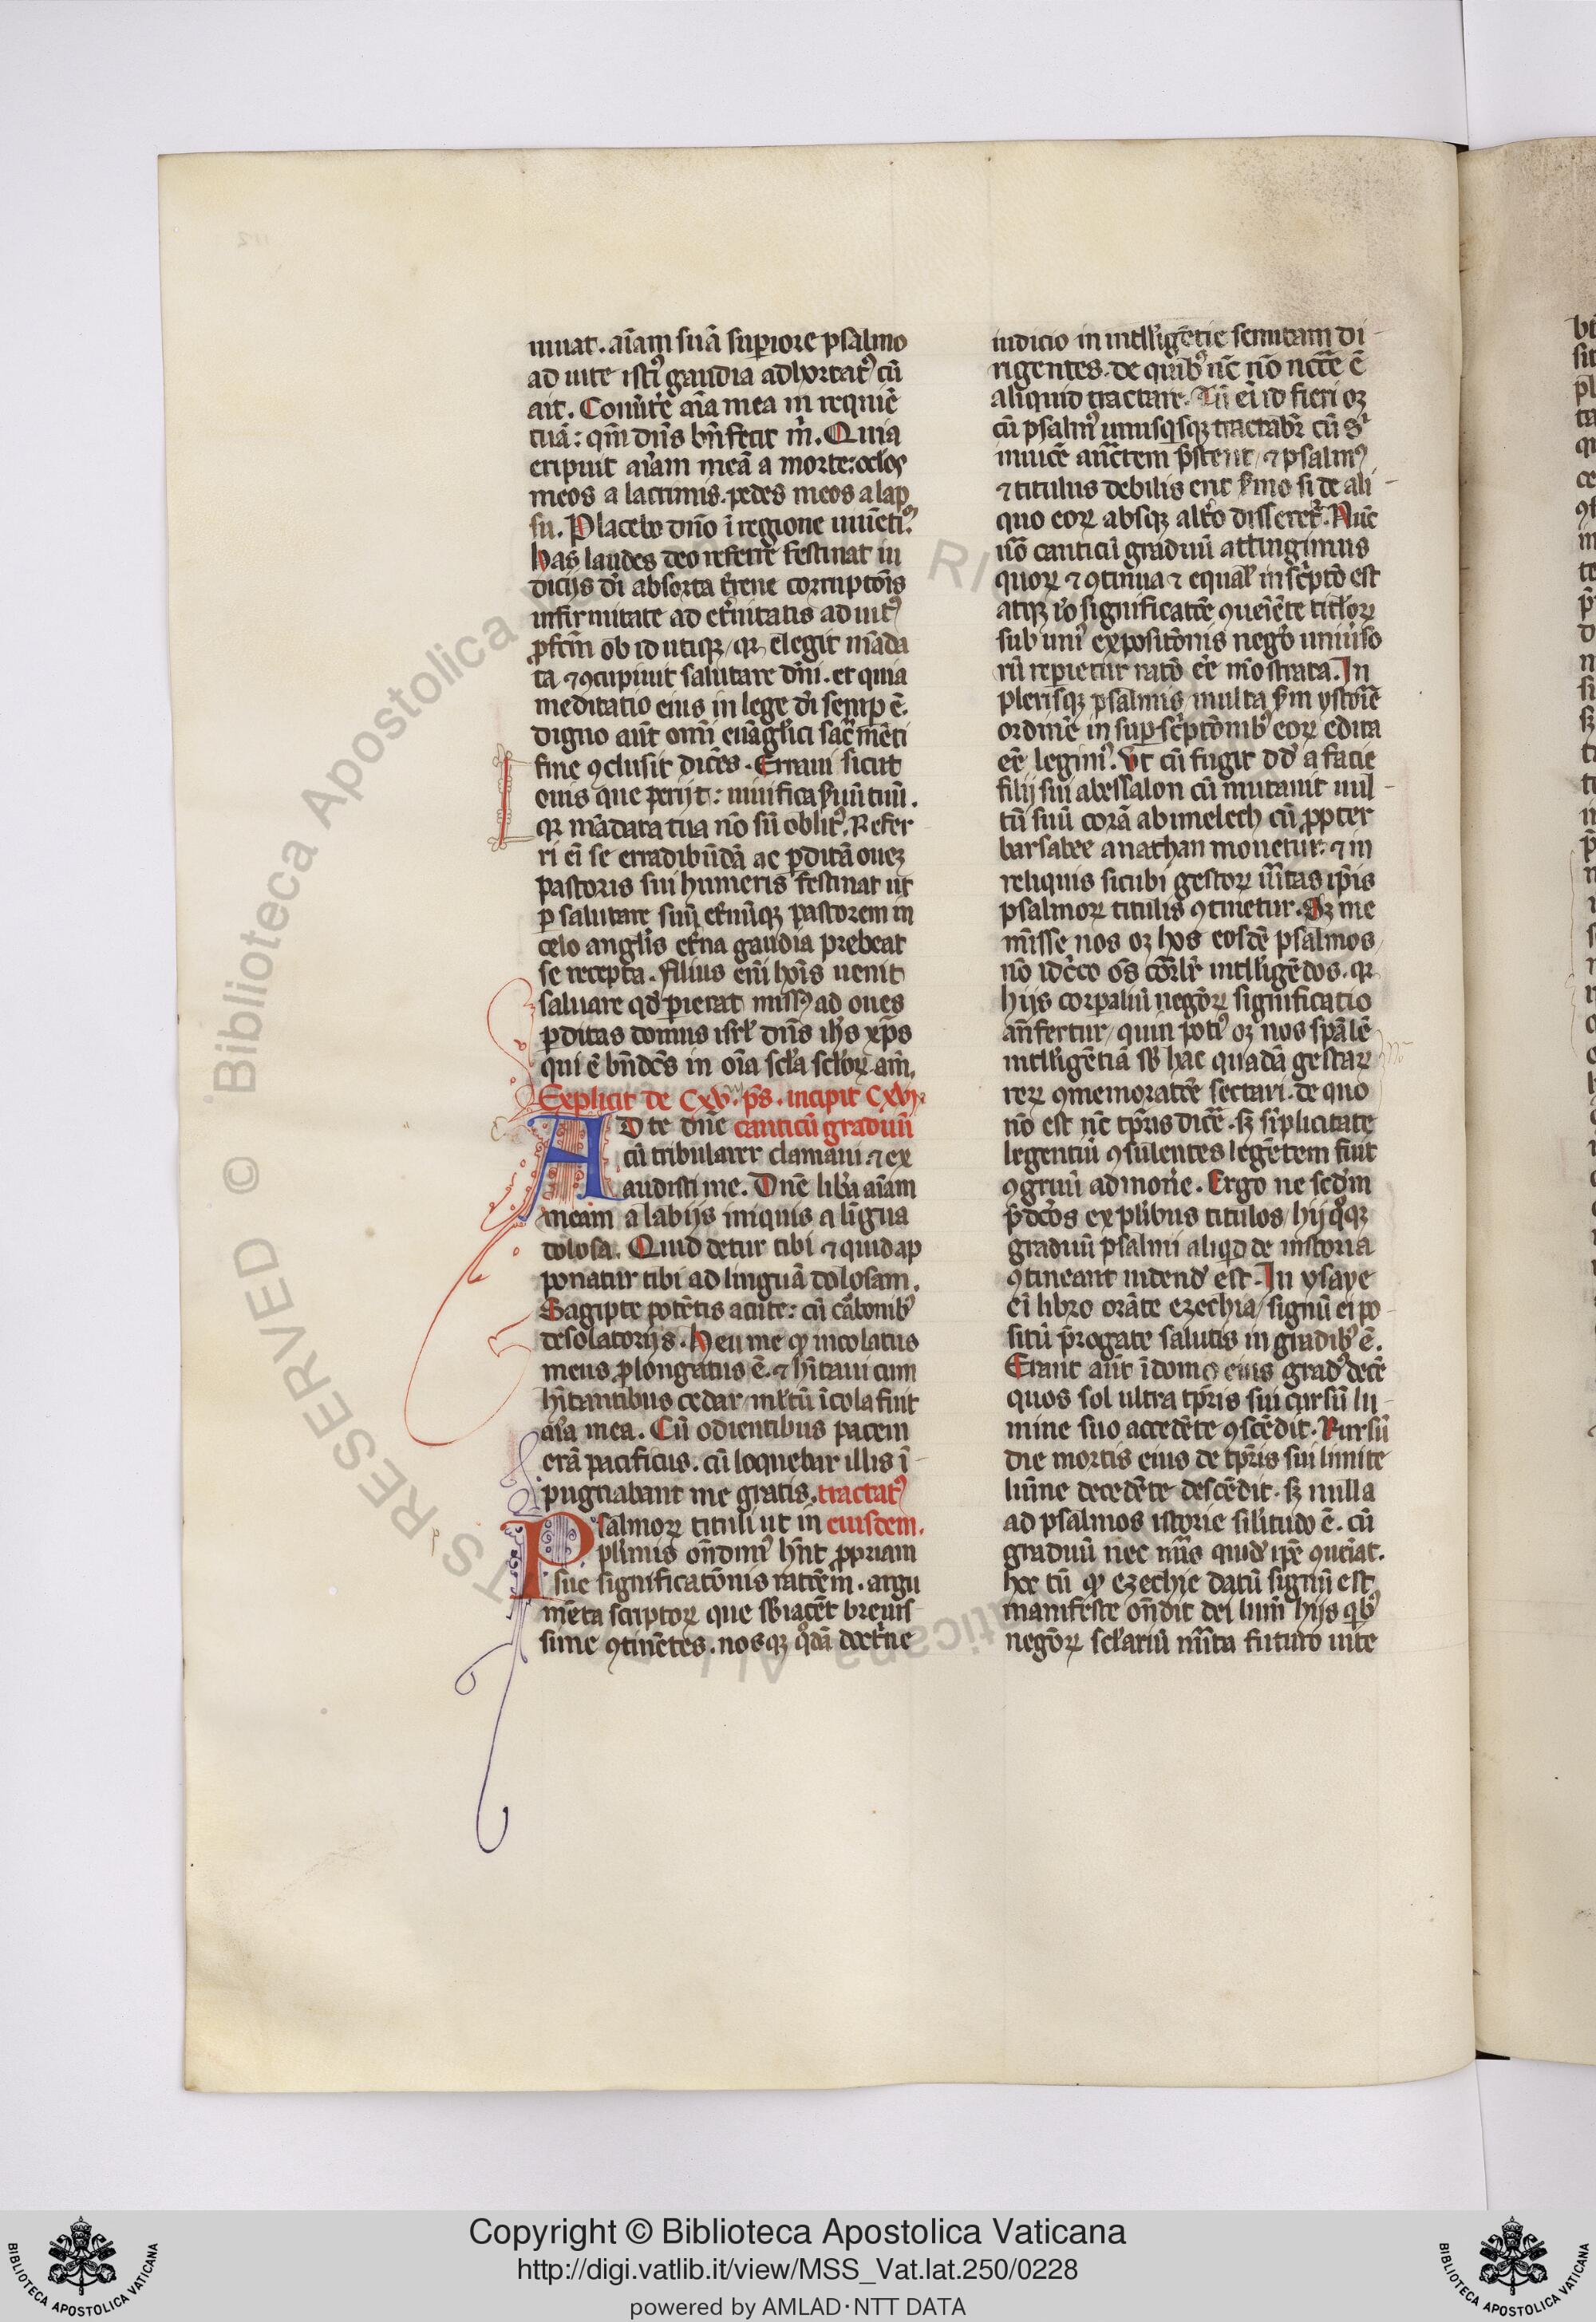 uiuat. aīam suā superiore psalmo
ad uite istiꝰ gaudia adhortatꝰ cū
ait. Conūtēr aīa mea in requiē
tuā: qm̄ dn̄s bn̄fecit m̄. Quia
eripuit aīam meā a morte: oclos
meos a lacrimis. pedes meos a lap
su. Placebo dn̄o ī regione uiuētiū.
has laudes deo referre festinat iu
dicijs dī absorta t̄rene corruptōis
infirmitate ad et̄nitatis aduitꝰ
ꝓfcm̄ ob id utiqꝫ, qꝛ elegit māda
ta ⁊ ꝯcupiuit salutare dn̄i. et quia
meditatio eius in lege dī semp ē.
digno aūt omī euāglici sacramēti
fine ꝯclusit dicēs. Erraui sicut
ouis que perijt: uiuifica ẜuū tuū.
qꝛ mādata tua nō sū oblitꝰ. Refer
ri eī se erradibūdā ac ꝑditā ouez
pastoris sui humeris festinat ut
ꝑ salutare suū et̄nūqꝫ pastorem in
celo anglis et̄na gaudia prebeat
se recepta. filius enī hoīs uenit
saluare qd̄ perierat missꝰ ad oues
ꝑditas domus isrl̄ dn̄s ih̄s xp̄s
qui ē bn̄dc̄s in oīa scl̄a scl̄oꝝ am̄.
Explicit de CXV. ps. incipit CXVI.
AD te dn̄e canticū graduū
cū tribularer clamaui ⁊ ex
audisti me. Dn̄e libā aīam
meam a labijs iniquis a līgua
dolosa. Quid detur tibi ⁊ quid ap
ponatur tibi ad linguā dolosam.
Sagipte potētis acute: cū cābonibꝰ
desolatorijs. Heu me qꝫ incolatus
meus ꝓlongatus ē. ⁊ hītaui cum
hītantibus cedar, ml̄tū īcola fuit
aīa mea. Cū odientibus pacem
erā pacificus. cū loquebar illis ī
pugnabant me gratis. tractatꝰ
Psalmoꝝ tituli ut in eiusdem.
plimis on̄dimꝰ hn̄t ꝓpriam
sue significatōnis ratōem. argu
mēta scriptoꝝ que sb̄iacēt breuis
sime ꝯtinētes. nosqꝫ qͦdā doct̄ne
iudicio in intlligētie semitam di
rigentes. de quibꝰ nc̄ nō nccē ē
aliquid tractare. Tū eī id fieri oꝫ
cū psalmꝰ unusqsqꝫ tractabr̄ cū S
inuicē auctem p̄stent, ⁊ psalmꝰ
⁊ titulus debilis erit ẜmo si de ali
quo eoꝝ absqꝫ altō disseret̄. Nūc
uō canticū graduū attingimus
quoꝝ ⁊ ꝯtinua ⁊ equal̄ inscͥptō est
atqꝫ iō significatōe ꝯueiēte titloꝝ
sub unꝰ expositōnis negō uniūso
rū reperietur ratō eē mōstrata. In
plerisqꝫ psalmis, multa ẜm ystoriē
ordinē in supsc̄ptōnibꝰ eoꝝ edita
eē legimꝰ. Vt cū fugit dd̄ a facie
filij sui abessalon cū mutauit uul
tū suū corā abimelech cū ꝓpter
barsabee a nathan monetur: ⁊ in
reliquis sicubi gestoꝝ ūitas ip̄is
psalmoꝝ titulis ꝯtinetur. Sꝫ me
misse nos oꝫ hos eosdē psalmos
nō idc̄co os̄ corꝑalr̄ intlligēdos. qꝛ
hijs corpaliū negōꝝ significatio
an̄fertur, quin potiꝰ oꝫ nos sp̄alē
intlligētiā sb̄ hac quadā gestaꝝ
reꝝ ꝯmemoratōe sectari. de quo
nō est nc̄ tpr̄is dicē. sꝫ sīplicitate
legentiū ꝯsulentes legētem fuit
ꝯgruū admonē. Ergo ne scd̄m
p̄dcōs ex plibus titulos, hij qͦqꝫ
graduū psalmi aliqd de instoria
ꝯtineant uidend̄ est. In ysaye
eī libro orāte ezechia, signū ei po
sitū p̄rogate salutis in gradibꝰ ē.
Erant aūt ī domo eius gradꝰ decē
quos sol ultra tpr̄is sui cursū lu
mine suo accedēte ꝯscēdit. Rursū
die mortis eius de tpr̄is sui limite
lūine decedēte descēdit. sꝫ nulla
ad psalmos istorie silitudo ē. cū
graduū nec nūs quid̄ ipē ꝯueīat.
hoc tū qꝫ ezechie datū signū est
manifeste on̄dit dei lum̄ hijs qbꝰ
negōꝝ scl̄ariū mīta futuro uite
Copyright © Biblioteca Apostolica Vaticana
http://digi.vatlib.it/view/MSS_Vat.lat.250/0228
powered by AMLAD·NTT DATA
BIBLIOTECA APOSTOLICA VATICANA
BIBLIOTECA APOSTOLICA VATICANA